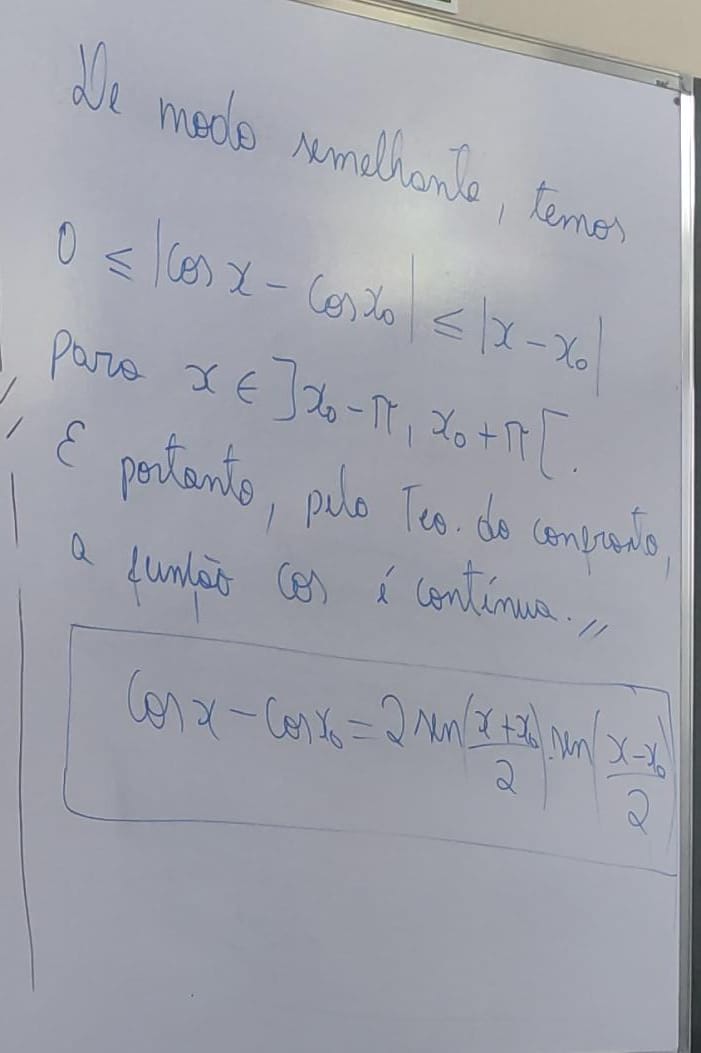 De modo semelhante, temos
0 ≤ |cos x - cos x₀| ≤ |x - x₀|
para x ∈ ]x₀ - π, x₀ + π[.
E portanto, pelo Teo. do confronto,
a função cos é contínua. //
cos x - cos x₀ = 2 sen(x + x₀/2) . sen(x - x₀/2)